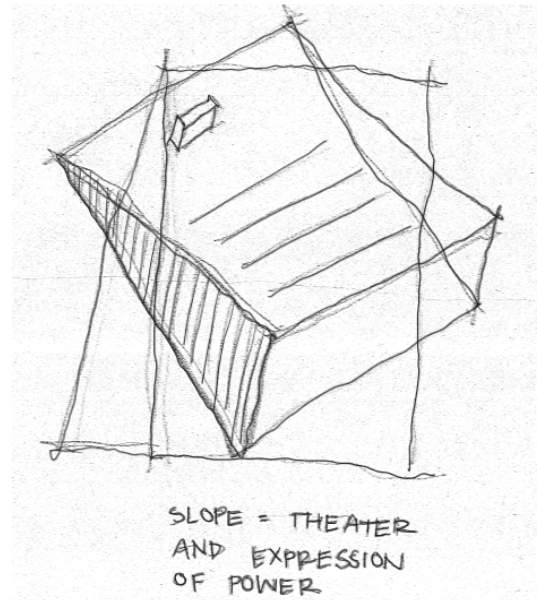 SLOPE = THEATER
AND EXPRESSION
OF POWER